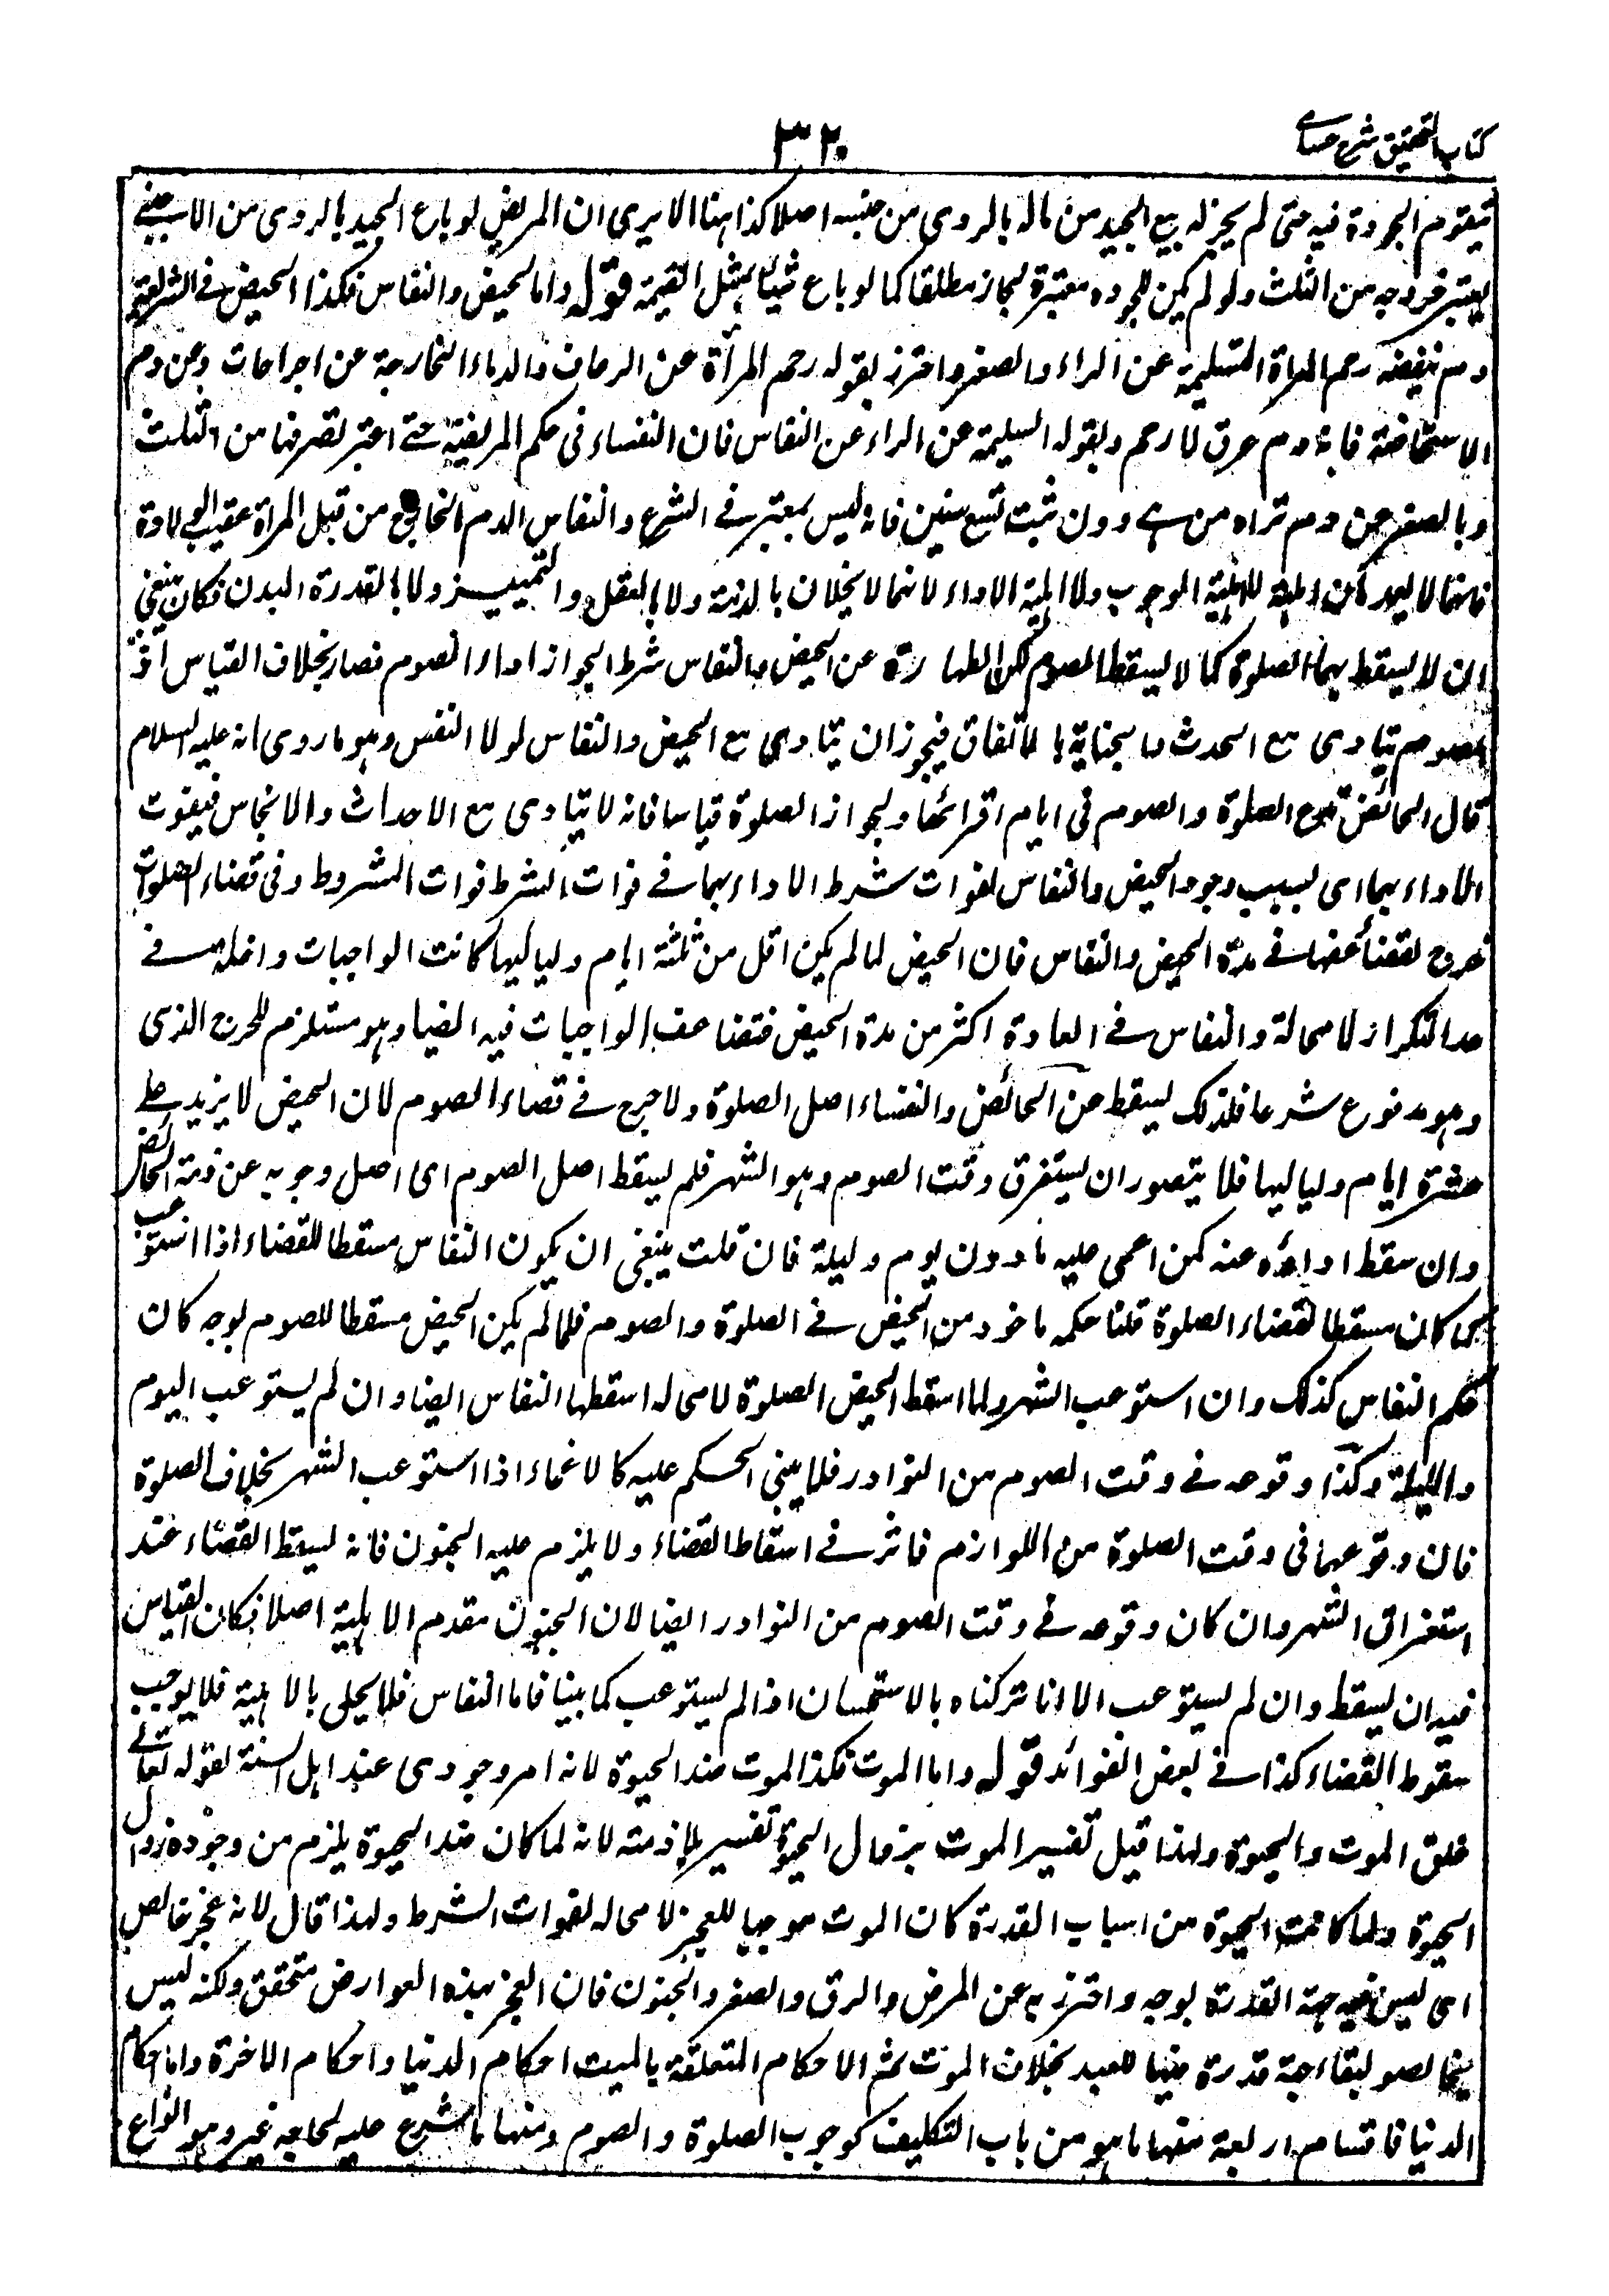 كتاب التحقيق شرح حسامى
٣٢٠
تتقوم الجودة فيه حتى لم يجز له بيع الجيد من ماله بالردى من جنسه اصلا كذا ههنا الا يرى ان المريض لو باع الجيد بالردى من الاجنبى
يعتبر خروجه من الثلث ولو لم يكن الجودة معتبرة لجاز مطلقا كما لو باع شيئا بمثل القيمة قوله واما الحيض والنفاس فكذا الحيض فى الشريعة
دم ينفضه رحم المرأة السليمة عن الداء والصغر واحترز بقوله رحم المرأة عن الرعاف والدماء الخارجة عن الجراحات وعن دم
الاستحاضة فانه دم عرق لا رحم وبقوله السليمة عن الداء عن النفاس فان النفساء فى حكم المريضة حتى اعتبر تصرفها من الثلث
وبالصغر عن دم تراه من هى دون بنت تسع سنين فانه ليس بمعتبر فى الشرع والنفاس الدم الخارج من قبل المرأة عقيب الولادة
فانهما لا يعدمان اهلية الوجوب ولا اهلية الاداء لانهما لا يخلان بالذمة ولا بالعقل والتمييز ولا بالقدرة البدن فكان ينبغى
ان لا يسقط بهما الصلوة كما لا يسقط الصوم لكن الطهارة عن الحيض والنفاس شرط لجواز اداء الصوم نصا بخلاف القياس اذ
الصوم يتادى مع الحدث والجنابة بالاتفاق فيجوز ان يتادى مع الحيض والنفاس لولا النص وهو ما روى انه عليه السلام
قال الحائض تدع الصلوة والصوم فى ايام اقرائها ولجواز الصلوة قياسا فانه لا يتادى مع الاحداث والانجاس فيفوت
الاداء بهما اى بسبب وجود الحيض والنفاس لفوات شرط الاداء بهما فى فوات الشرط فوات المشروط وفى قضاء الصلوات
حرج لتضاعفها فى مدة الحيض والنفاس فان الحيض لما لم يكن اقل من ثلثة ايام ولياليها كانت الواجبات داخلة فى
حد التكرار لا محالة والنفاس فى العادة اكثر من مدة الحيض فتضاعف الواجبات فيه ايضا وهو مستلزم للحرج الذى
وهو مدفوع شرعا فلذلك يسقط عن الحائض والنفساء اصل الصلوة ولا حرج فى قضاء الصوم لان الحيض لا يزيد على
عشرة ايام ولياليها فلا يتصور ان يستغرق وقت الصوم وهو الشهر فلم يسقط اصل الصوم اى اصل وجوبه عن ذمة الحائض
وان سقط اداؤه عنه كمن اغمى عليه ما دون يوم وليلة فان قلت ينبغى ان يكون النفاس مسقطا للقضاء اذا استوعب
كما كان مسقطا لقضاء الصلوة قلنا حكمه ماخوذ من الحيض فى الصلوة والصوم فلما لم يكن الحيض مسقطا للصوم بوجه كان
حكم النفاس كذلك وان استوعب الشهر ولما اسقط الحيض الصلوة لا محاله اسقطها النفاس ايضا وان لم يستوعب اليوم
والليلة وكذا وقوعه فى وقت الصوم من النوادر فلا يبنى الحكم عليه كالاغماء اذا استوعب الشهر بخلاف الصلوة
فان وقوعها فى وقت الصلوة من اللوازم فاثر فى اسقاط القضاء ولا يلزم عليه الجنون فانه يسقط القضاء عند
استغراق الشهر وان كان وقوعه فى وقت الصوم من النوادر ايضا لان الجنون مقدم الاهلية اصلا فكان القياس
فيه ان يسقط وان لم يستوعب الا انا تركناه بالاستحسان اذا لم يستوعب كما بينا فاما النفاس فلا يخل بالاهلية فلا يوجب
سقوط القضاء كذا فى بعض الفوائد قوله واما الموت فكذا الموت ضد الحيوة لانه امر وجودى عند اهل السنة لقوله تعالى
خلق الموت والحيوة ولهذا قيل تفسير الموت بزوال الحيوة تفسير بلازمته لانه لما كان ضد الحيوة يلزم من وجوده زوال
الحيوة ولما كانت الحيوة من اسباب القدرة كان الموت موجبا للعجز لا محاله لفوات الشرط ولهذا قال لانه عجز خالص
اى ليس فيه جهة القدرة بوجه واحترز به عن المرض والرق والصغر والجنون فان العجز بهذه العوارض متحقق ولكنه ليس
بخالص لبقاء جهة قدرة فيها للعبد بخلاف الموت ثم الاحكام المتعلقة بالميت احكام الدنيا واحكام الاخرة واما احكام
الدنيا فاقسام اربعة منها ما هو من باب التكليف كوجوب الصلوة والصوم ومنها ما شرع عليه لحاجة غيره وهو انواع